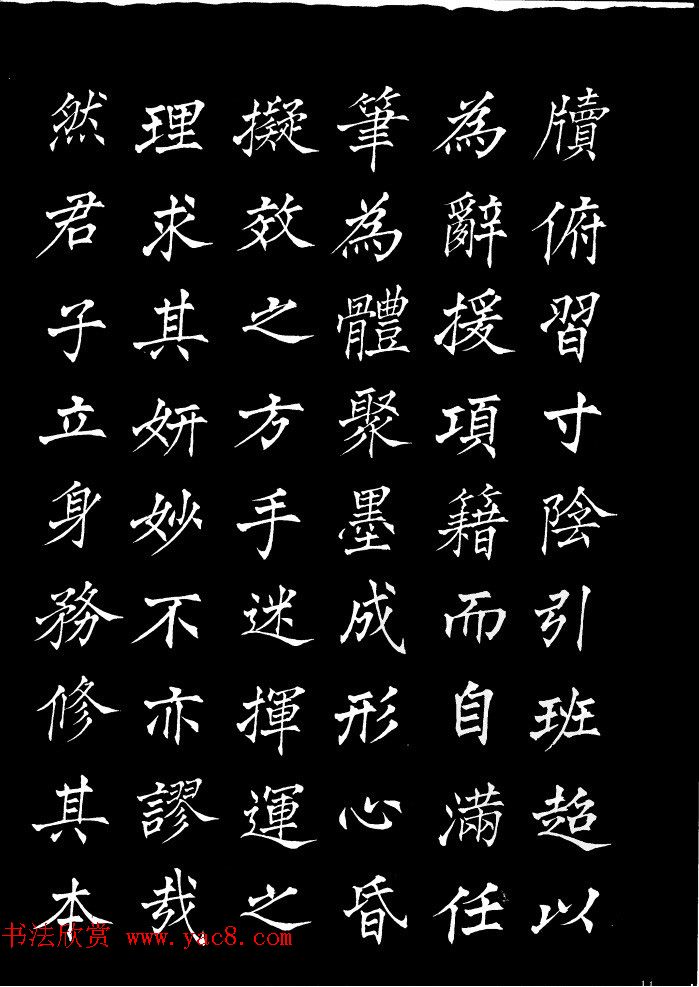 牘俯習寸陰引班超以
為辭援項籍而自滿任
筆為體聚墨成形心昏
擬效之方手迷揮運之
理求其妍妙不亦謬哉
然君子立身務修其本
书法欣赏 www.yac8.com
11